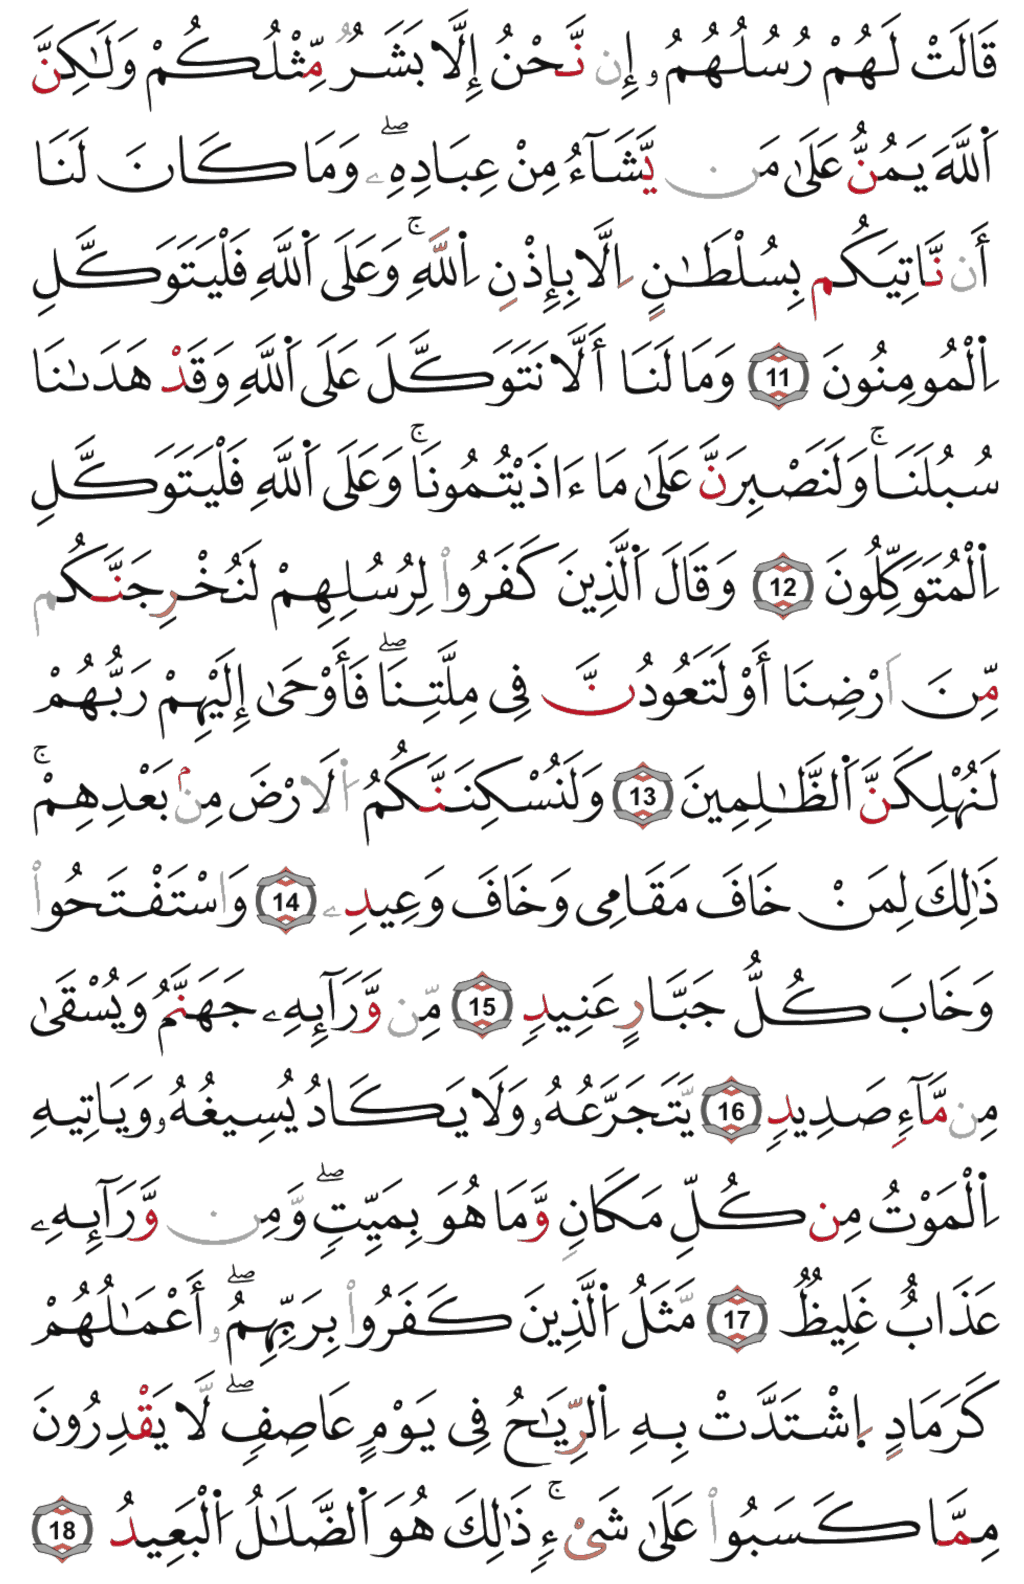 قَالَتْ لَهُمْ رُسُلُهُمُۥ إِن نَّحْنُ إِلَّا بَشَرٌ مِّثْلُكُمْ وَلَٰكِنَّ
اَ۬للَّهَ يَمُنُّ عَلَىٰ مَنْ يَّشَآءُ مِنْ عِبَادِهِۦۖ وَمَا كَانَ لَنَا
أَن نَّاتِيَكُم بِسُلْطَٰنٍ اِلَّا بِإِذْنِ اِ۬للَّهِۚ وَعَلَى اَ۬للَّهِ فَلْيَتَوَكَّلِ
اِ۬لْمُومِنُونَ 11 وَمَا لَنَا أَلَّا نَتَوَكَّلَ عَلَى اَ۬للَّهِ وَقَدْ هَدَىٰنَا
سُبُلَنَاۚ وَلَنَصْبِرَنَّ عَلَىٰ مَا ءَاذَيْتُمُونَاۚ وَعَلَى اَ۬للَّهِ فَلْيَتَوَكَّلِ
اِ۬لْمُتَوَكِّلُونَ 12 وَقَالَ اَ۬لَّذِينَ كَفَرُواْ لِرُسُلِهِمْ لَنُخْرِجَنَّكُم
مِّنَ اَرْضِنَا أَوْ لَتَعُودُنَّ فِى مِلَّتِنَاۖ فَأَوْحَىٰ إِلَيْهِمْ رَبُّهُمْ
لَنُهْلِكَنَّ اَ۬لظَّٰلِمِينَ 13 وَلَنُسْكِنَنَّكُمُ اُ۬لَارْضَ مِنۢ بَعْدِهِمْۚ
ذَٰلِكَ لِمَنْ خَافَ مَقَامِى وَخَافَ وَعِيدِۦ 14 وَاسْتَفْتَحُواْ
وَخَابَ كُلُّ جَبَّارٍ عَنِيدٍ 15 مِّن وَّرَآئِهِۦ جَهَنَّمُ وَيُسْقَىٰ
مِن مَّآءٍ صَدِيدٍ 16 يَّتَجَرَّعُهُۥ وَلَا يَكَادُ يُسِيغُهُۥ وَيَاتِيهِ
اِ۬لْمَوْتُ مِن كُلِّ مَكَانٍ وَّمَا هُوَ بِمَيِّتٍۖ وَّمِنْ وَّرَآئِهِۦ
عَذَابٌ غَلِيظٌ 17 مَّثَلُ اُ۬لَّذِينَ كَفَرُواْ بِرَبِّهِمُۥۖ أَعْمَٰلُهُمْ
كَرَمَادٍ اِ۪شْتَدَّتْ بِهِ اِ۬لرِّيَٰحُ فِى يَوْمٍ عَاصِفٍۖ لَّا يَقْدِرُونَ
مِمَّا كَسَبُواْ عَلَىٰ شَىْءٍۚ ذَٰلِكَ هُوَ اَ۬لضَّلَٰلُ اُ۬لْبَعِيدُ 18